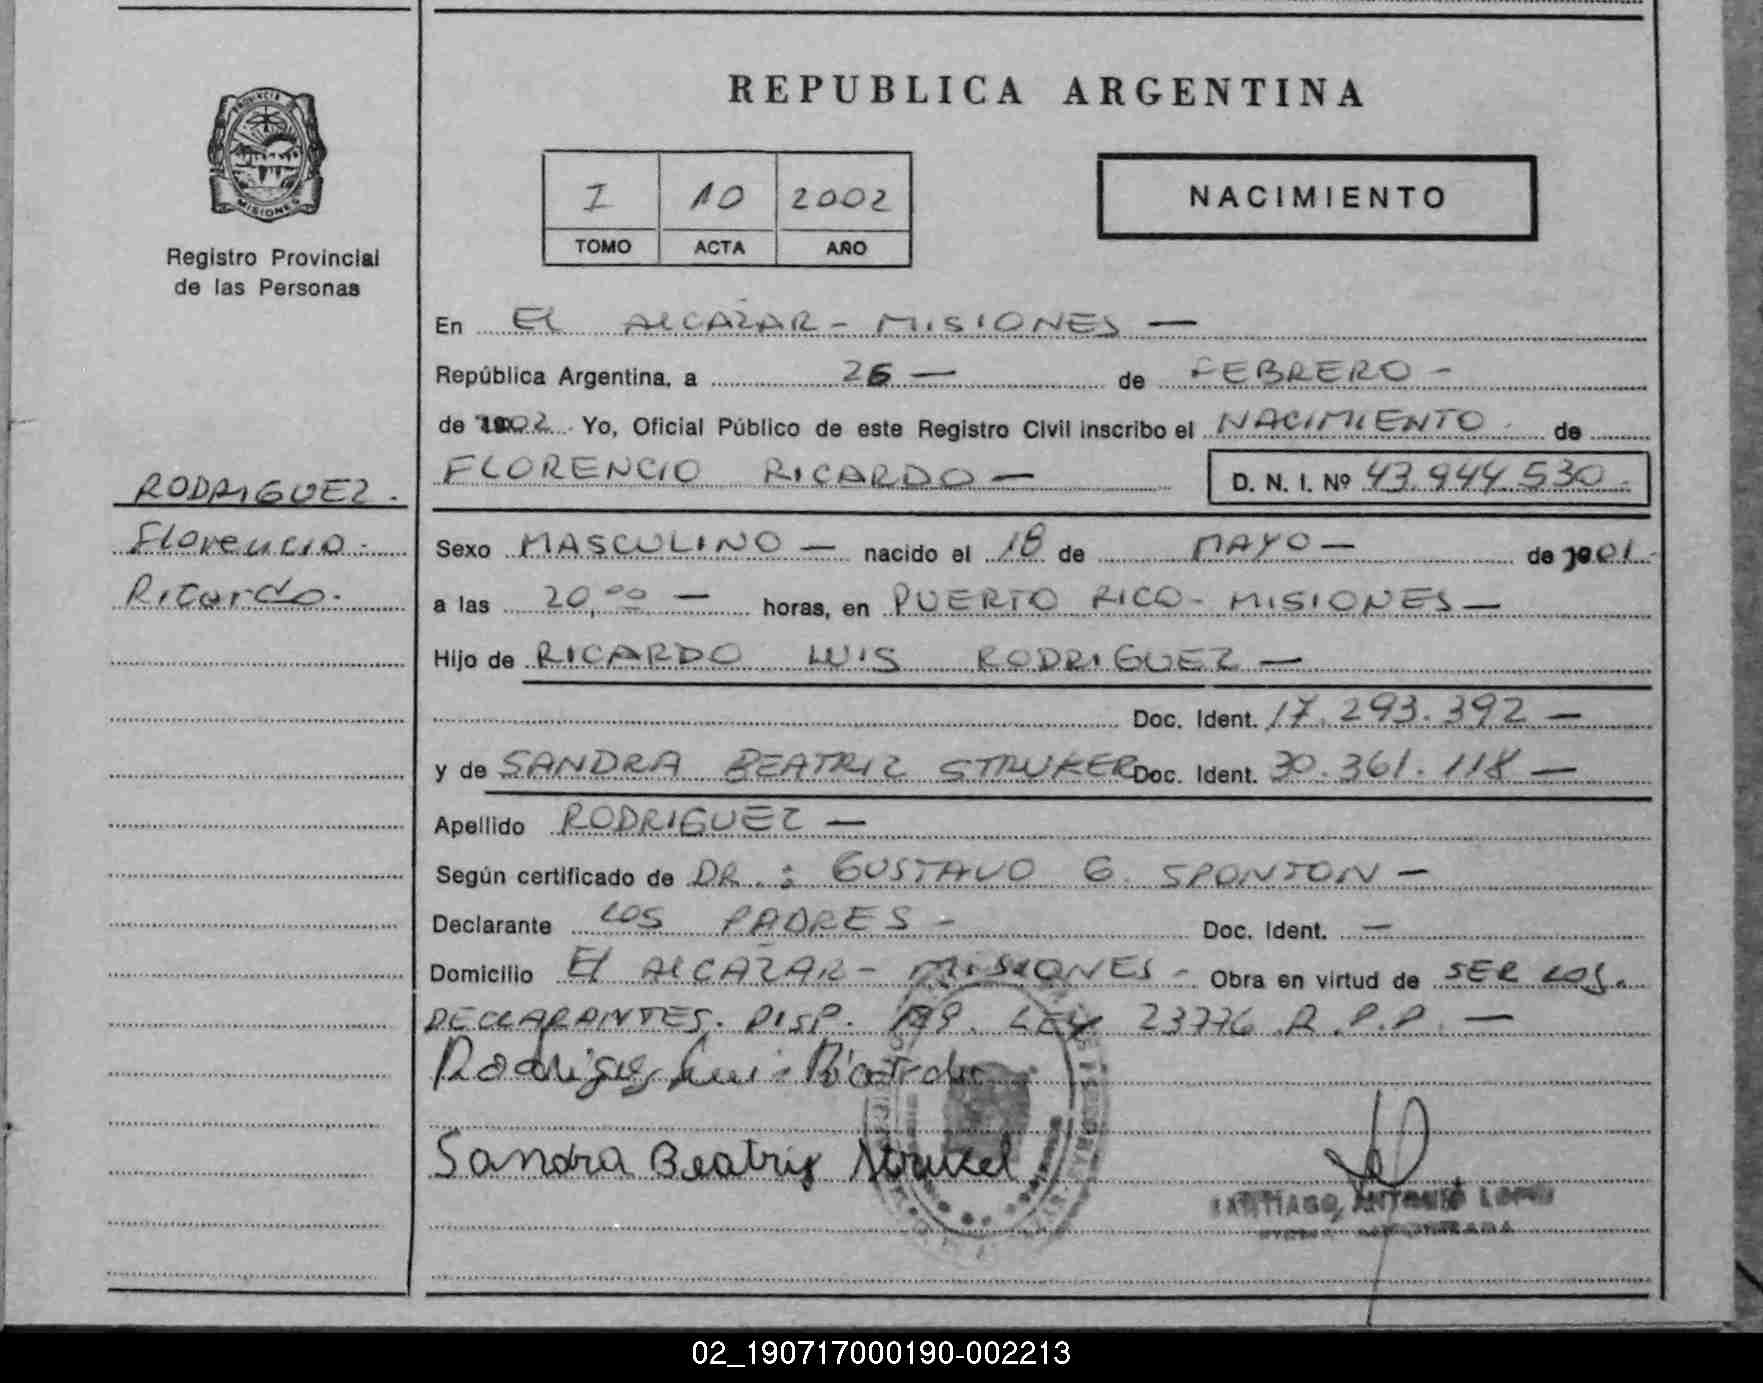 REPUBLICA ARGENTINA
PROVINCIA DE
MISIONES
Registro Provincial
de las Personas
I 10 2002
TOMO ACTA AÑO
NACIMIENTO
En EL ALCAZAR - MISIONES —
República Argentina, a 26 — de FEBRERO -
de 2002 Yo, Oficial Público de este Registro Civil inscribo el NACIMIENTO de
FLORENCIO RICARDO — D. N. I. Nº 43.944.530.
RODRIGUEZ.
Florencio.
Ricardo.
Sexo MASCULINO — nacido el 18 de MAYO — de 2001.
a las 20,00 — horas, en PUERTO RICO - MISIONES —
Hijo de RICARDO LUIS RODRIGUEZ —
Doc. Ident. 17.293.392 —
y de SANDRA BEATRIZ STRUKER Doc. Ident. 30.361.118 —
Apellido RODRIGUEZ —
Según certificado de DR.: GUSTAVO G. SPONTON —
Declarante LOS PADRES - Doc. Ident. —
Domicilio El ALCAZAR - MISIONES - Obra en virtud de SER LOS.
DECLARANTES. DISP. LEY 23776 R.P.P. —
Sandra Beatriz
SANTIAGO ANTONIO
02_190717000190-002213